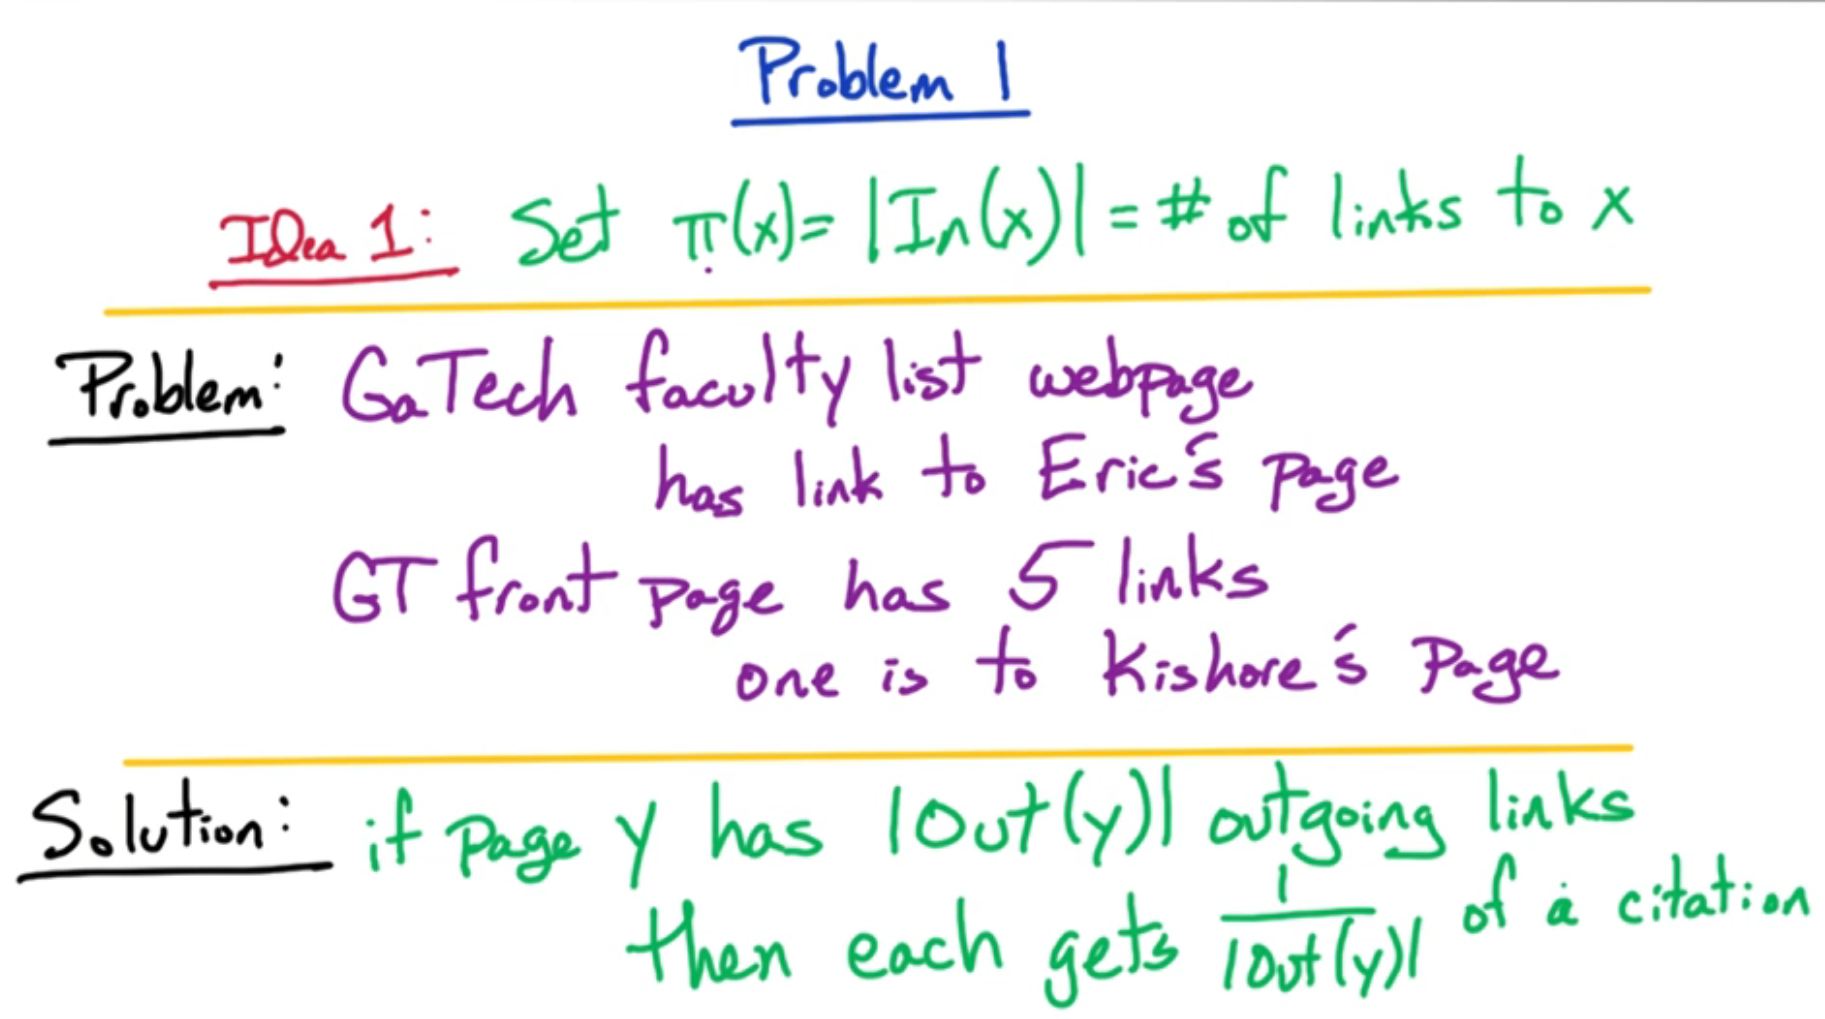 Problem 1
Idea 1: Set π(x) = |In(x)| = # of links to x
Problem: GaTech faculty list webpage
has link to Eric's page
GT front page has 5 links
one is to Kishore's page
Solution: if page y has |Out(y)| outgoing links
then each gets 1/|Out(y)| of a citation